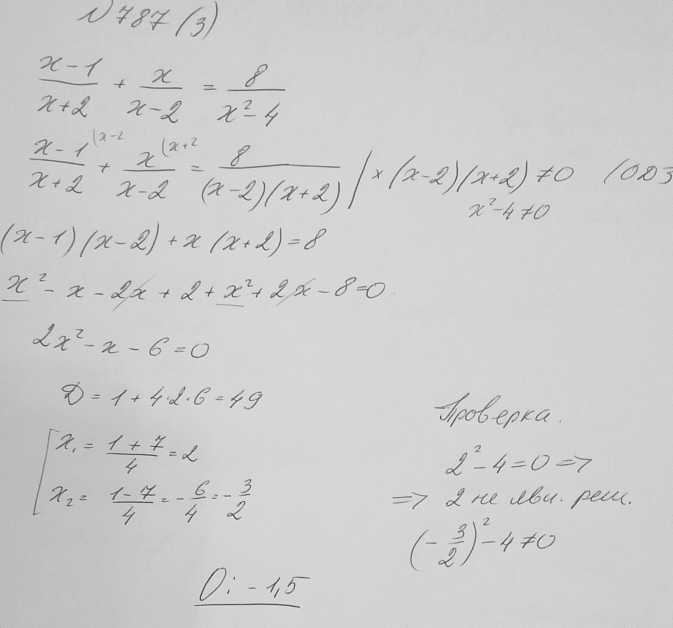 N 787 (3)
(x-1)/(x+2) + x/(x-2) = 8/(x²-4)
(x-1)/(x+2) (x-2 + x/(x-2) (x+2 = 8/((x-2)(x+2)) | × (x-2)(x+2) ≠ 0 (ОДЗ
x²-4≠0
(x-1)(x-2) + x(x+2) = 8
x² - x - 2x + 2 + x² + 2x - 8 = 0
2x² - x - 6 = 0
D = 1 + 4·2·6 = 49
x₁ = (1+7)/4 = 2
x₂ = (1-7)/4 = -6/4 = -3/2
Проверка.
2² - 4 = 0 =>
=> 2 не яви. реш.
(-3/2)² - 4 ≠ 0
О: -1,5